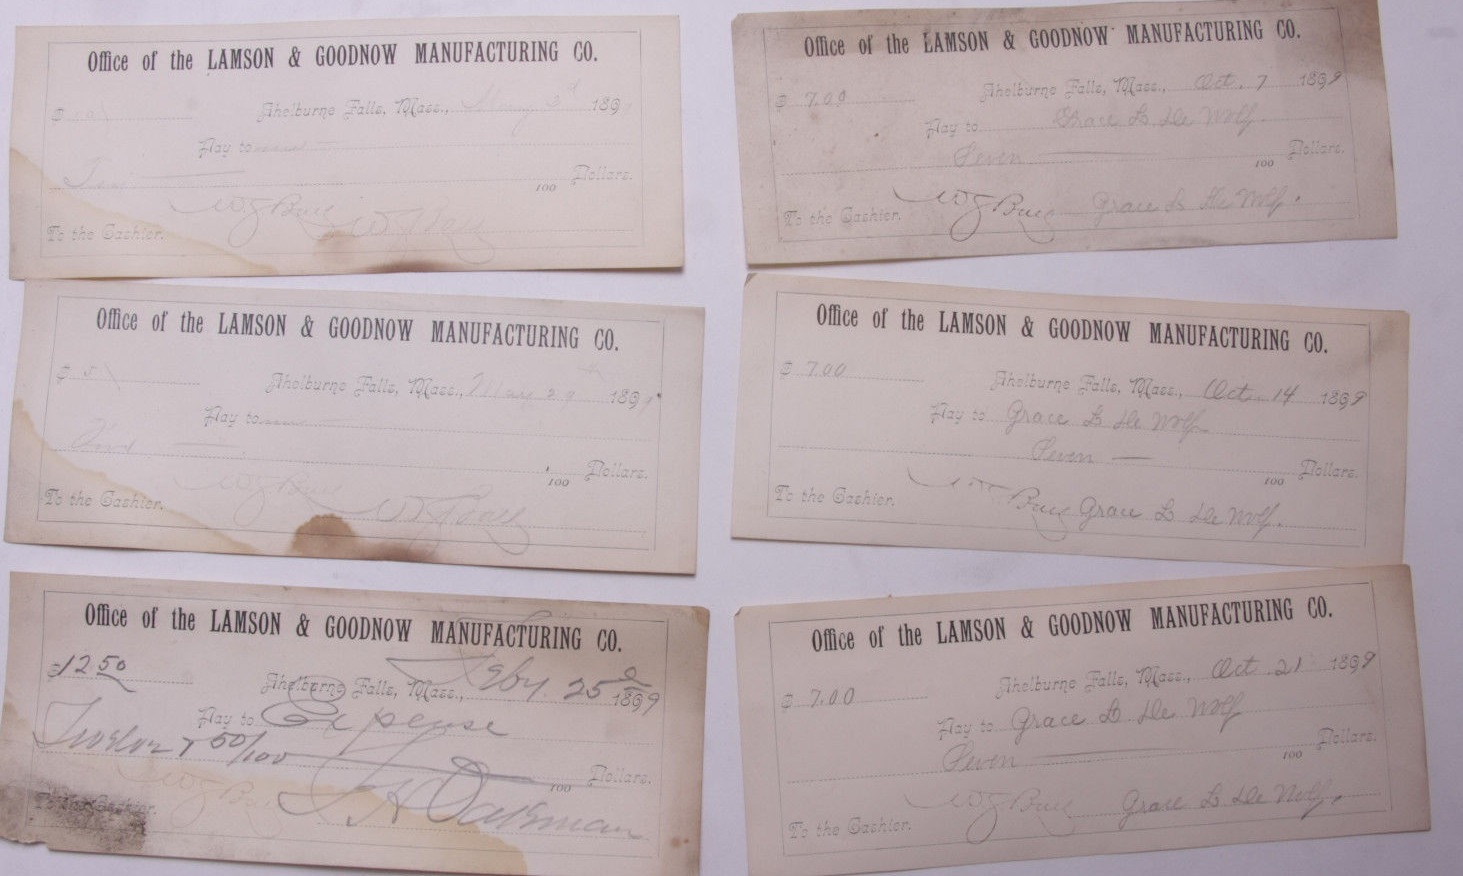 Office of the LAMSON & GOODNOW MANUFACTURING CO.
$ Shelburne Falls, Mass., May 189
Pay to
100 Dollars.
To the Cashier.
Office of the LAMSON & GOODNOW MANUFACTURING CO.
$ 5 Shelburne Falls, Mass., May 29 189
Pay to
100 Dollars.
To the Cashier.
Office of the LAMSON & GOODNOW MANUFACTURING CO.
$12 50 Shelburne Falls, Mass., Feby. 25 1899
Pay to Expense
Twelve + 50/100 100 Dollars.
To the Cashier. Oakman
Office of the LAMSON & GOODNOW MANUFACTURING CO.
$ 7.00 Shelburne Falls, Mass., Oct. 7 1899
Pay to Grace L De Wolf.
Seven 100 Dollars.
To the Cashier. Grace L De Wolf.
Office of the LAMSON & GOODNOW MANUFACTURING CO.
$ 7.00 Shelburne Falls, Mass., Oct. 14 1899
Pay to Grace L De Wolf
Seven 100 Dollars.
To the Cashier. Grace L De Wolf.
Office of the LAMSON & GOODNOW MANUFACTURING CO.
$ 7.00 Shelburne Falls, Mass., Oct. 21 1899
Pay to Grace L De Wolf
Seven 100 Dollars.
To the Cashier. Grace L De Wolf.